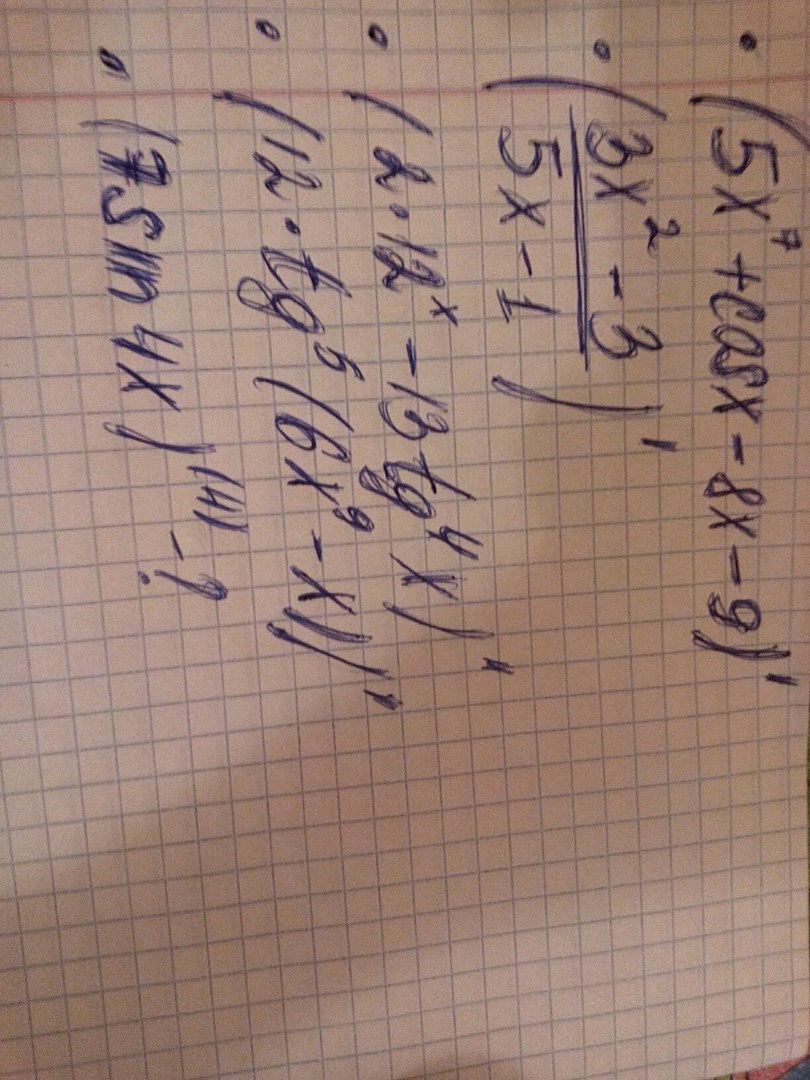 • (5x⁷ + cosx - 8x - 9)'
• ((3x² - 3)/(5x - 1))'
• (2·12ˣ - 13 tg⁴x)"
• (12·tg⁵(6x⁹ - x))"
• (7 sin 4x)⁽⁴⁾ - ?